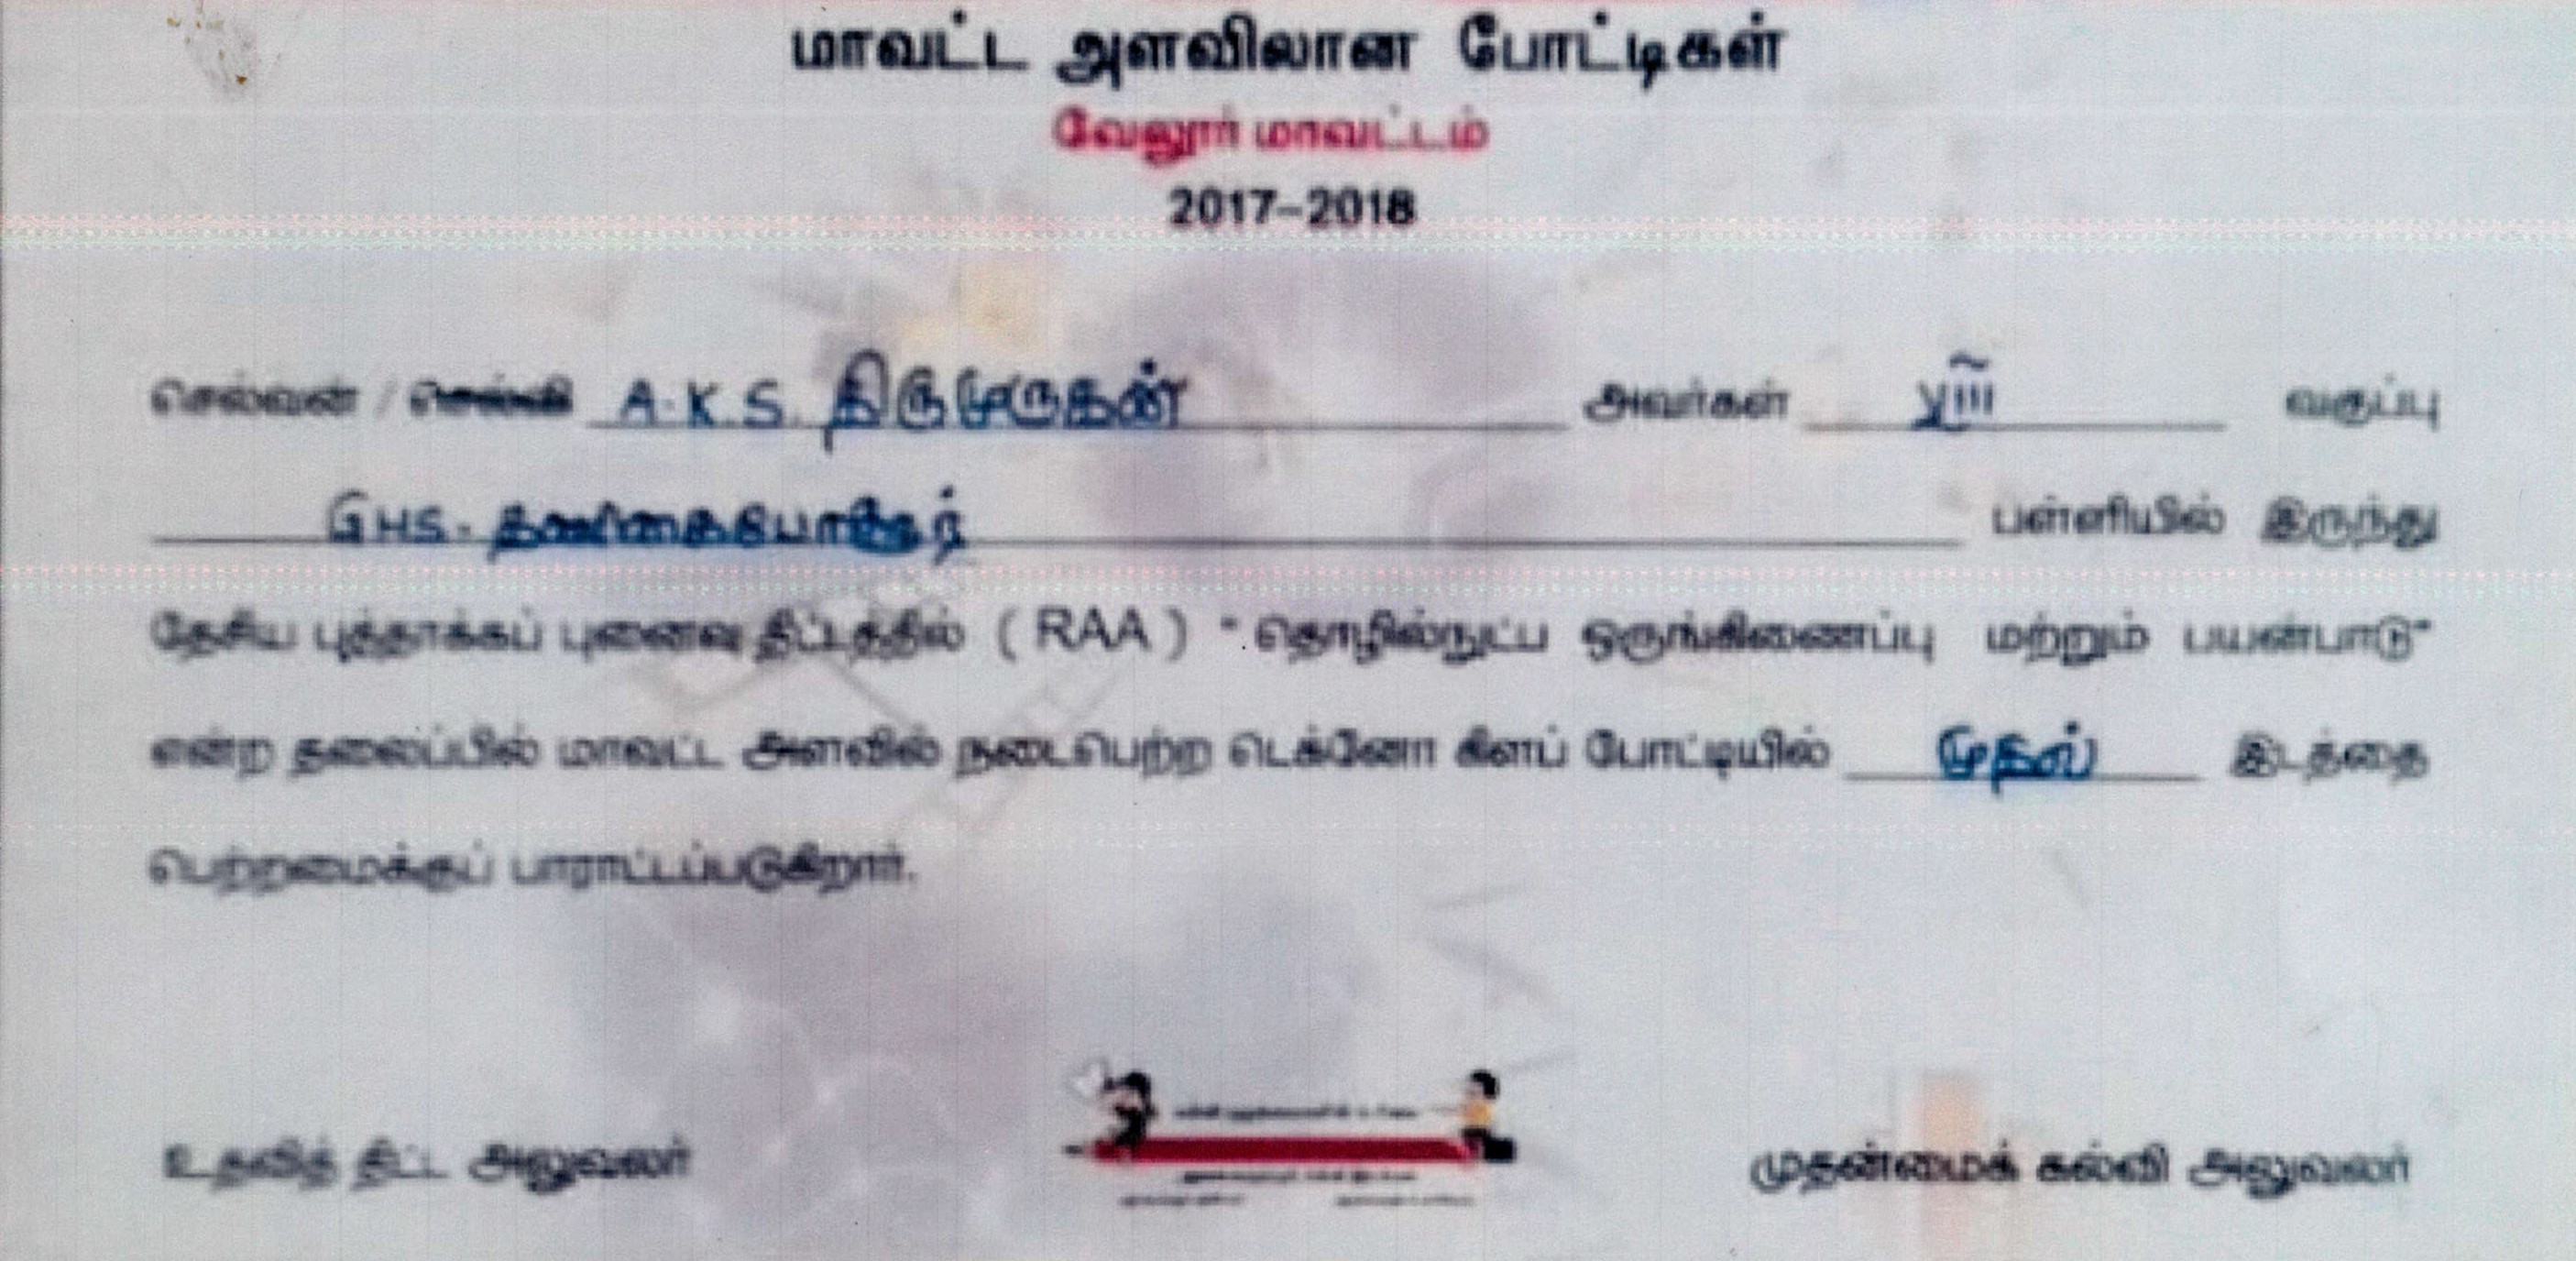 மாவட்ட அளவிலான போட்டிகள்
வேலூர் மாவட்டம்
2017-2018
செல்வன் / செல்வி A.K.S. திருமுருகன் அவர்கள் VIII வகுப்பு
GHS. தணிகைபோளூர் பள்ளியில் இருந்து
தேசிய புத்தாக்கப் புனைவு திட்டத்தில் ( RAA ) "தொழில்நுட்ப ஒருங்கிணைப்பு மற்றும் பயன்பாடு"
என்ற தலைப்பில் மாவட்ட அளவில் நடைபெற்ற டெக்னோ கிளப் போட்டியில் முதல் இடத்தை
பெற்றமைக்குப் பாராட்டப்படுகிறார்.
உதவித் திட்ட அலுவலர்
முதன்மைக் கல்வி அலுவலர்